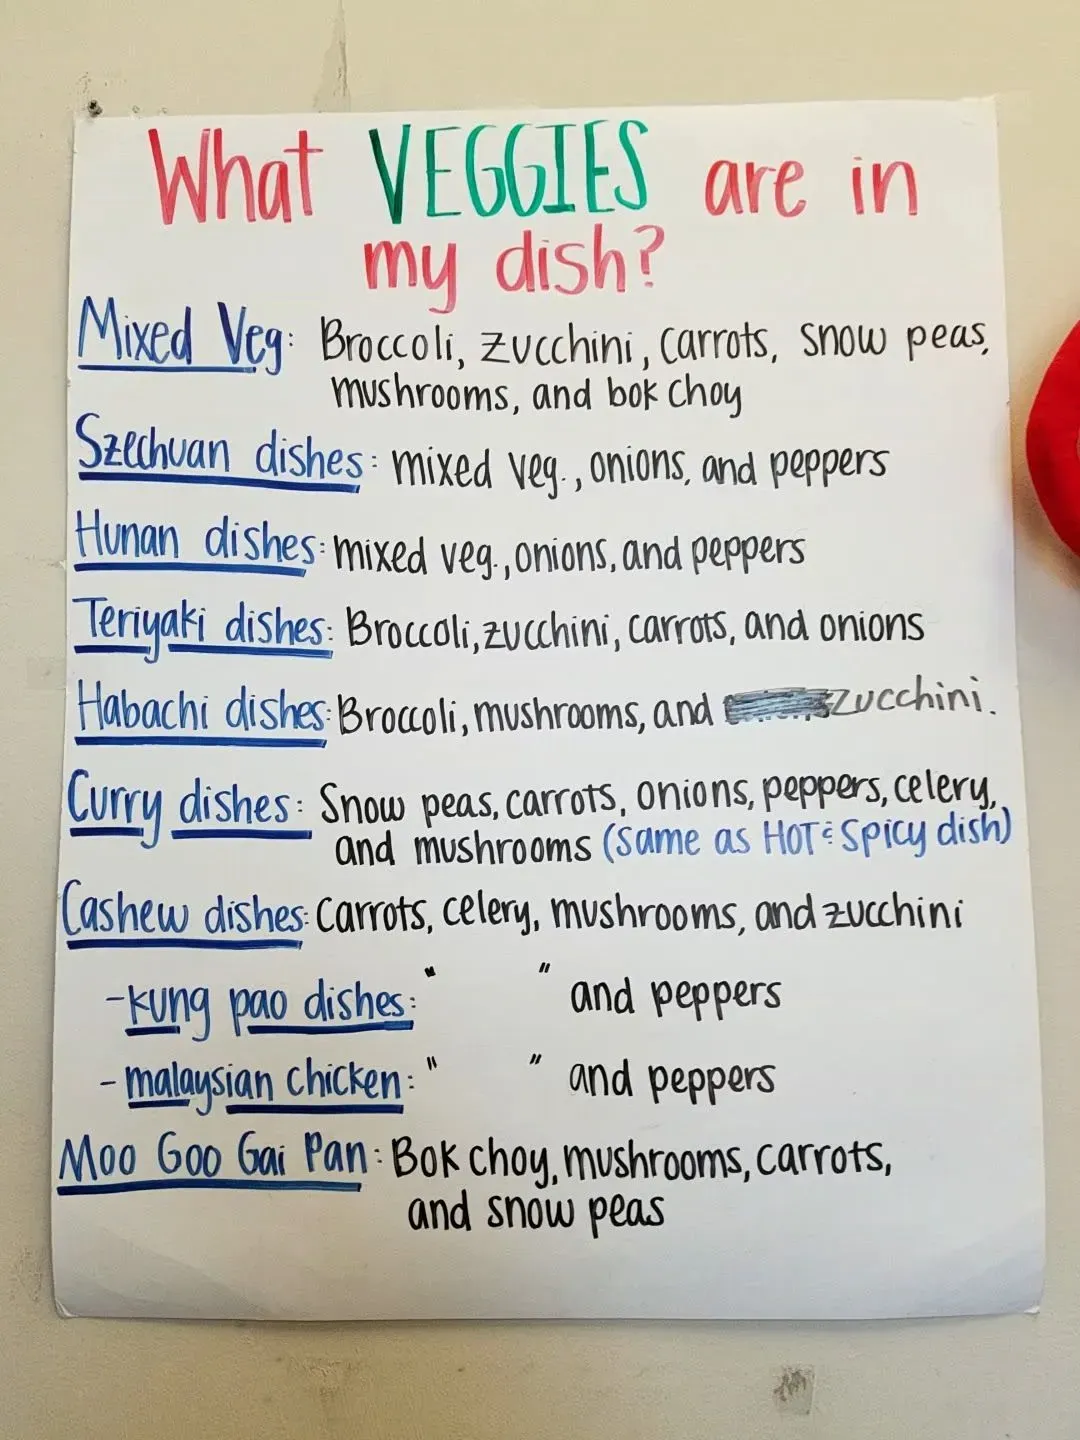 What VEGGIES are in
my dish?
Mixed Veg: Broccoli, zucchini, carrots, snow peas,
mushrooms, and bok choy
Szechuan dishes: mixed veg., onions, and peppers
Hunan dishes: mixed veg., onions, and peppers
Teriyaki dishes: Broccoli, zucchini, carrots, and onions
Habachi dishes: Broccoli, mushrooms, and zucchini.
Curry dishes: Snow peas, carrots, onions, peppers, celery,
and mushrooms (same as HOT & Spicy dish)
Cashew dishes: carrots, celery, mushrooms, and zucchini
-kung pao dishes: " " and peppers
- malaysian chicken: " " and peppers
Moo Goo Gai Pan: Bok choy, mushrooms, carrots,
and snow peas